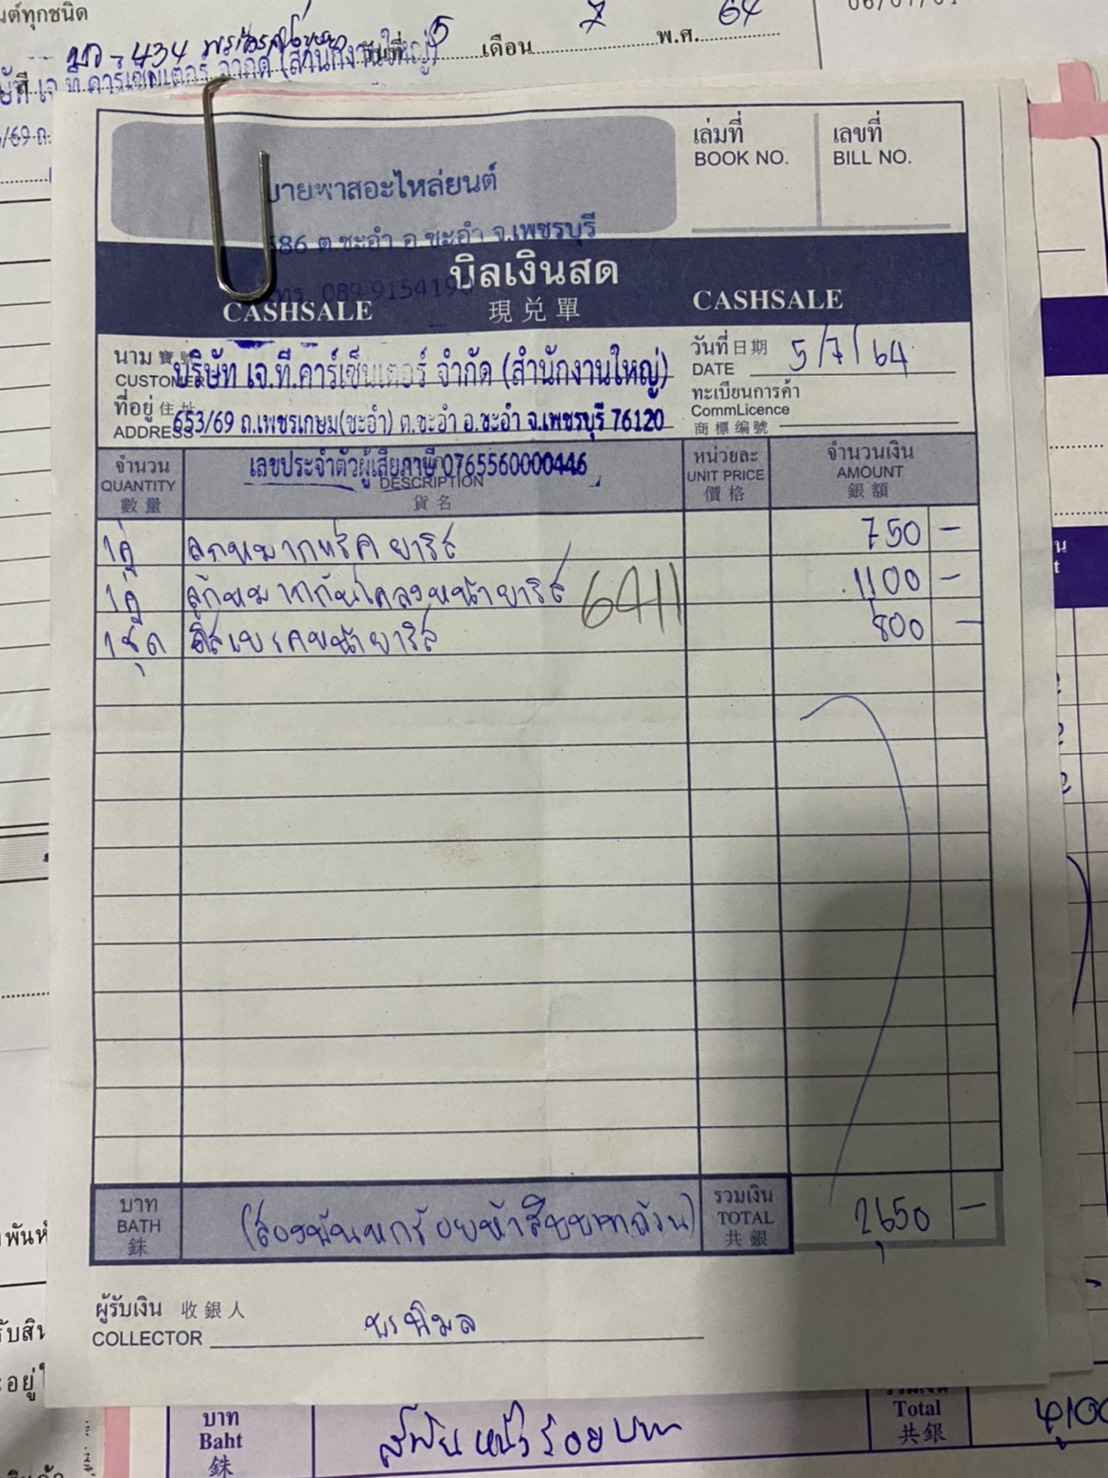 นต์ทุกชนิด
วันที่ 5 เดือน 7 พ.ศ. 64
ที.คาร์เซ็นเตอร์ จำกัด (สำนักงานใหญ่)
เล่มที่
BOOK NO.
เลขที่
BILL NO.
บายพาสอะไหล่ยนต์
686 ต.ชะอำ อ.ชะอำ จ.เพชรบุรี
บิลเงินสด
CASHSALE 現兑單 CASHSALE
นาม
CUSTOMER บริษัท เจ.ที.คาร์เซ็นเตอร์ จำกัด (สำนักงานใหญ่)
วันที่ 日期
DATE 5/7/64
ที่อยู่ 住址
ADDRESS 653/69 ถ.เพชรเกษม(ชะอำ) ต.ชะอำ อ.ชะอำ จ.เพชรบุรี 76120
ทะเบียนการค้า
CommLicence
商標编號
เลขประจำตัวผู้เสียภาษี 0765560000446
จำนวน
QUANTITY
數量
DESCRIPTION
貨名
หน่วยละ
UNIT PRICE
價格
จำนวนเงิน
AMOUNT
銀額
1คู่ ลูกหมากแร็ค ยาริส 750 -
1คู่ ลูกหมากกันโคลงหน้ายาริส 1100 -
6411
1ชุด ดิสเบรคหน้ายาริส 800 -
บาท
BATH
銖
(สองพันหกร้อยห้าสิบบาทถ้วน)
รวมเงิน
TOTAL
共銀
2,650 -
ผู้รับเงิน 收銀人
COLLECTOR พรพิมล
บาท
Baht
銖
สี่พันหนึ่งร้อยบาท
Total
共銀
4,100